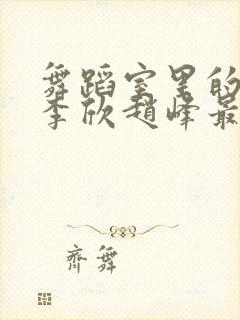 舞蹈室里的
李欣趙峰最
齊舞